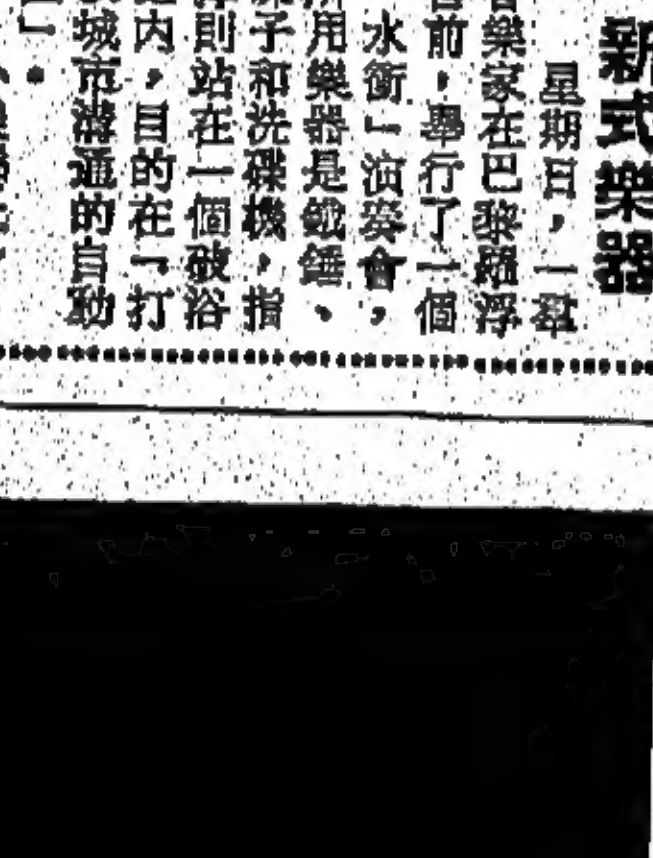 新式樂器
星期日，一羣
音樂家在巴黎龐浮
前，舉行了一個
水衝」演奏會，
用樂器是鐵錘、
子和洗碟機，指
則站在一個破浴
內，目的在「打
城市溝通的自動
」。